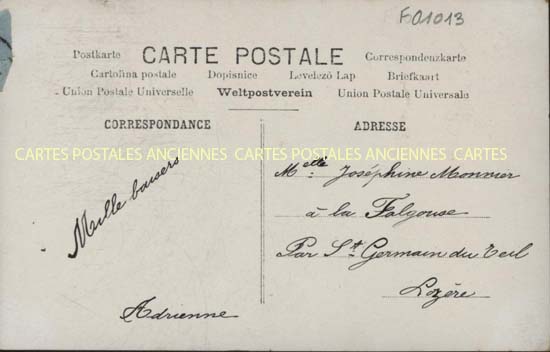 FA1013
Postkarte CARTE POSTALE Correspondenzkarte
Cartolina postale Dopisnice Levelező Lap Briefkaart
Union Postale Universelle Weltpostverein Union Postale Universale
CORRESPONDANCE ADRESSE
CARTES POSTALES ANCIENNES CARTES POSTALES ANCIENNES CARTES
Mille baisers
Adrienne
Melle Joséphine Monnier
à la Falgouse
Par St Germain du Teil
Lozère